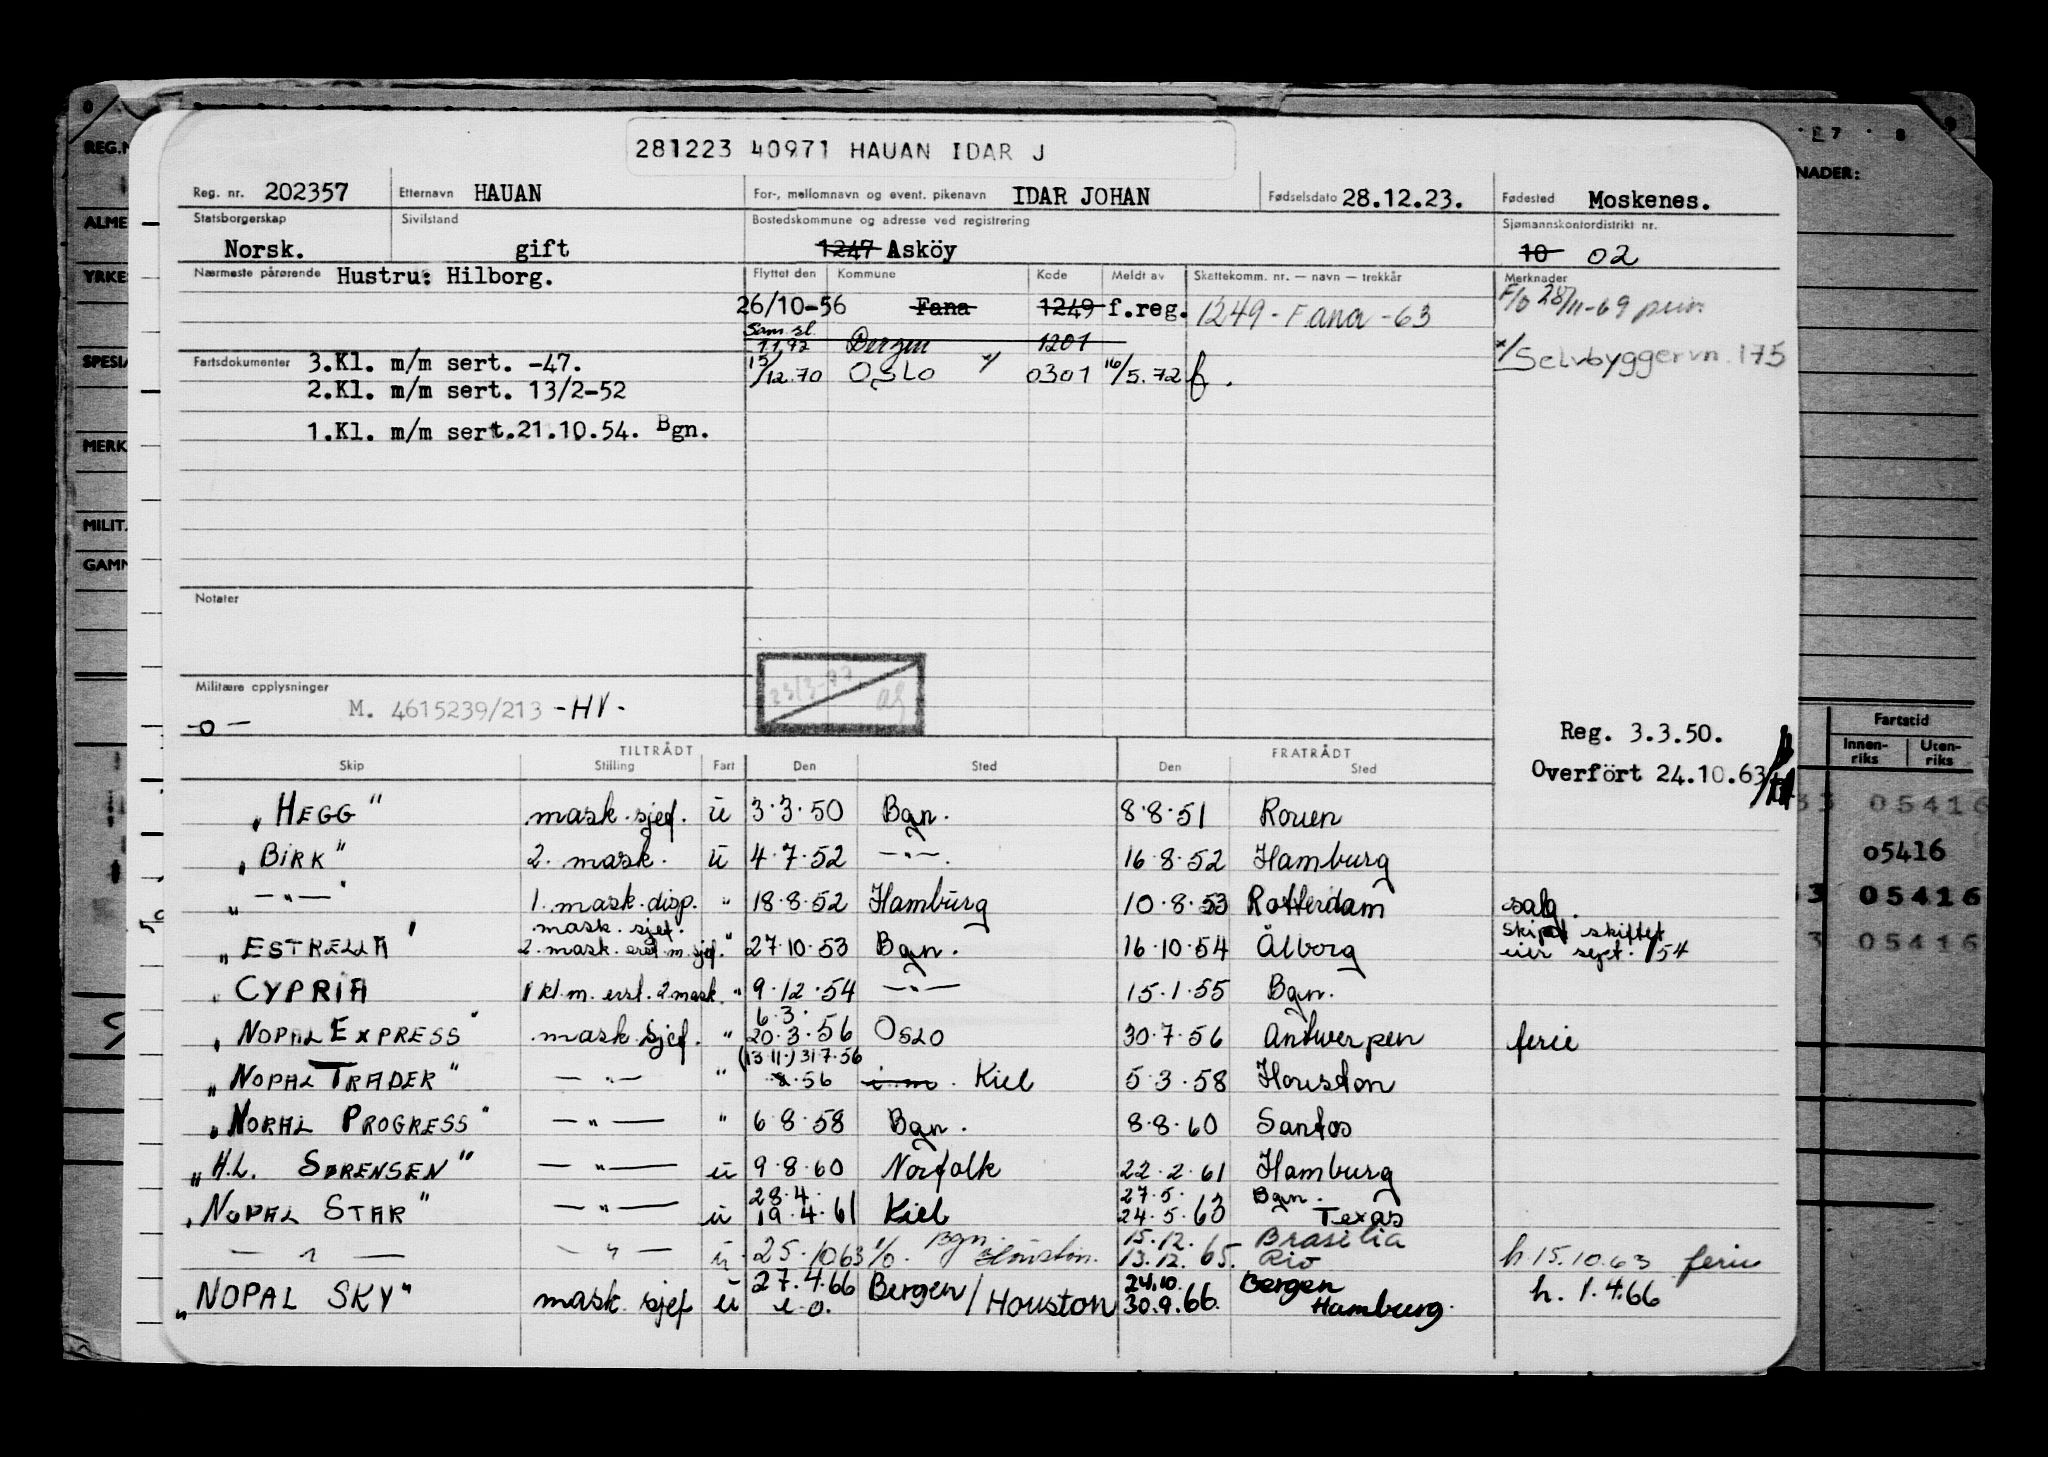 281223 40971 HAUAN IDAR J
Reg. nr. 202357 Etternavn HAUAN For-, mellomnavn og event. pikenavn IDAR JOHAN Fødselsdato 28.12.23. Fødested Moskenes.
Statsborgerskap Sivilstand Bostedskommune og adresse ved registrering Sjømannskontordistrikt nr.
Norsk. gift 1247 Asköy 10 02
Nærmeste pårørende Hustru: Hilborg. Flyttet den Kommune Kode Meldt av Skattekomm. nr. — navn — trekkår Merknader
26/10-56 Fana 1249 f.reg. 1249 - Fana - 63 F/o 28/11-69
Bergen 1201
Fartsdokumenter 3.Kl. m/m sert. -47. 15/12.70 OSLO x/ 0301 16/5.72 f. x/ Selvbyggervn. 175
2.Kl. m/m sert. 13/2-52
1.Kl. m/m sert.21.10.54. Bgn.
Notater
Militære opplysninger
-o- M. 4615239/213 -HV-
Reg. 3.3.50.
Overfört 24.10.63
TILTRÅDT FRATRÅDT
Skip Stilling Fart Den Sted Den Sted
"HEGG" mask.sjef. u 3.3.50 Bgn. 8.8.51 Rouen
"BIRK" 2. mask. u 4.7.52 —"—. 16.8.52 Hamburg
"—"—" 1. mask.disp. " 18.8.52 Hamburg 10.8.53 Rotterdam salg.
mask. sjef. skipet skiftet
"ESTRELLA" 2. mask. erst m. sjef. " 27.10.53 Bgn. 16.10.54 Ålborg eier sept. /54
"CYPRIA 1 kl.m. erst. 2 mask. " 9.12.54 —"— 15.1.55 Bgn.
6.3.
"NOPAL EXPRESS" mask sjef. " 20.3.56 OSLO 30.7.56 Antwerpen ferie
(13.11.) 31.7.56
"NOPAL TRADER" —"— " 8.56 i.m. Kiel 5.3.58 Houston
"NOPAL PROGRESS" —"— " 6.8.58 Bgn. 8.8.60 Santos
"H.L. SØRENSEN" —"— u 9.8.60 Norfolk 22.2.61 Hamburg
28.4. 27.5. Bgn.
"NOPAL STAR" —"— u 19.4.61 Kiel 24.5.63 Texas
Bgn. 15.12. Brasilia
—"— —"— u 25.10 63 i/o. Houston. 13.12.65. Rio h 15.10.63 ferie
27.4.66 24.10. Bergen
"NOPAL SKY" mask sjef u i.o. Bergen/Houston 30.9.66. Hamburg. h. 1.4.66
REG.N
ALME
YRKE
SPESIA
MERK
MILIT.
GAMM
NADER:
7 8 9
Fartstid
Innen-riks Uten-riks
05416
05416
05416
05416